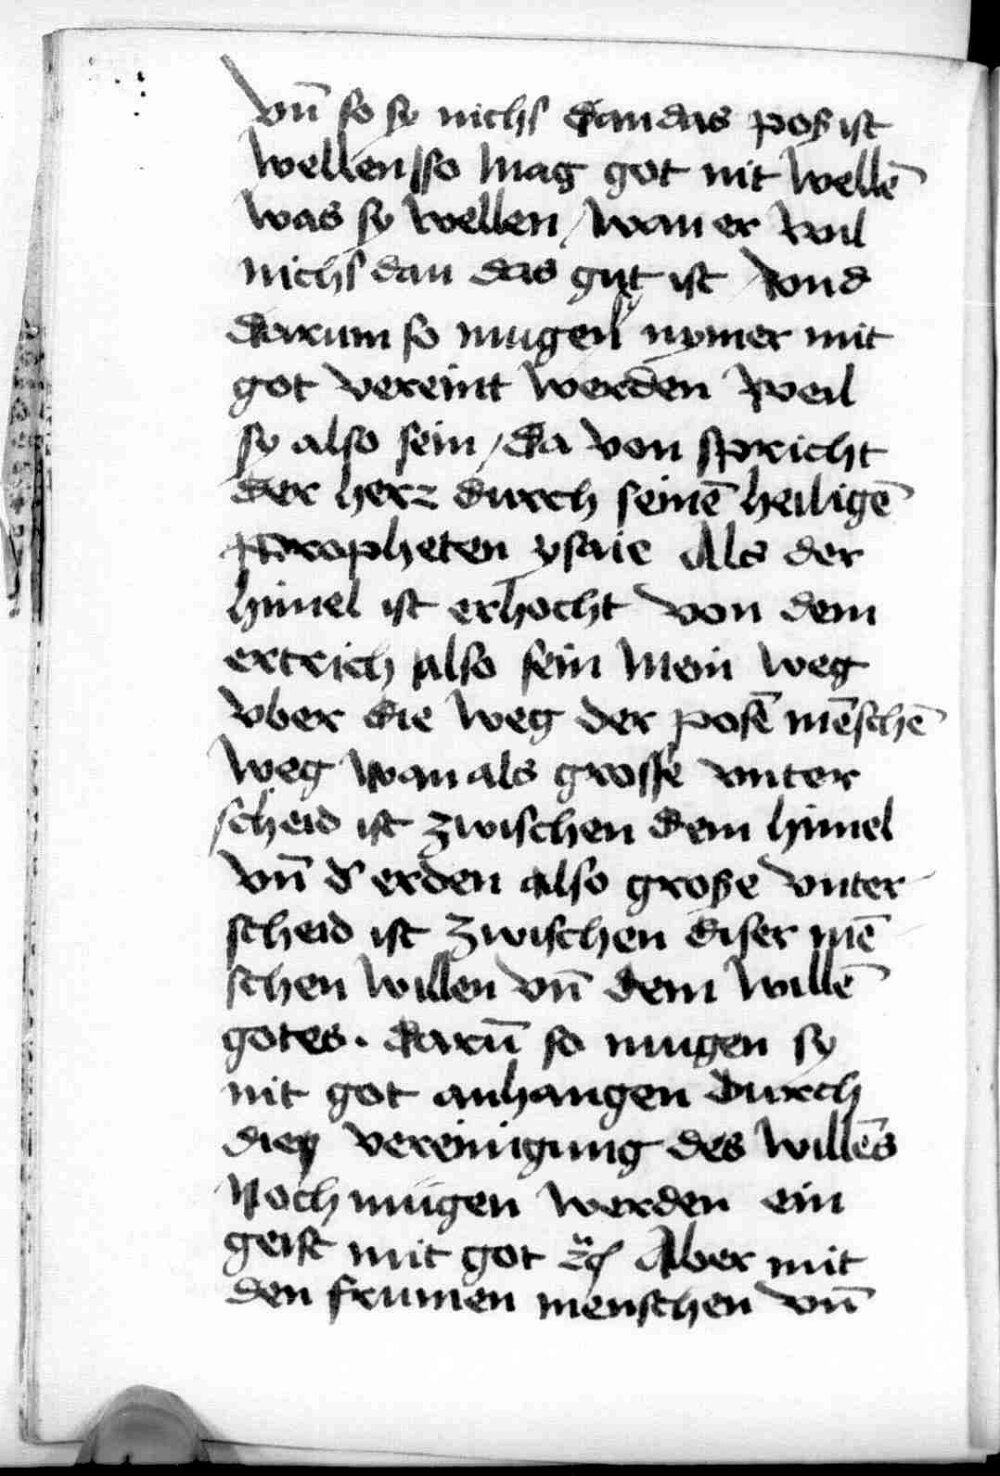 vn̄ so sy nichs dan das poß ist
wellen / so mag got nit wellē
was sy wellen / wan er wil
nichs dan das gut ist vnd
darum so mugen sy nymer mit
got vereint werden weil
sy also sein / da von spricht
der herz durch seinē heiligē
propheten ysaie Als der
himel ist erhocht von dem
ertrich also sein mein weg
vber die weg der posē mēschē
weg wan als grosse vnter
scheid ist zwischen dem himel
vn̄ d' erden also große vnter
scheid ist zwischen diser mē
schen willen vn̄ dem willē
gotes. darū so mugen sy
nit got anhangen durch
die vereinigung des willēs
Noch mugen werden ein
geist mit got zc̈ Aber mit
den frumen menschen vn̄